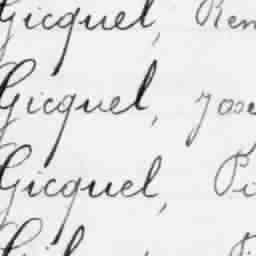 Gicquel, Ren
Gicquel, Jose
Gicquel, Pi